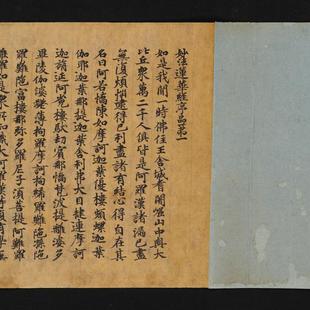 妙法蓮華經序品第一
如是我聞一時佛住王舍城耆闍崛山中與大
比丘衆萬二千人俱皆是阿羅漢諸漏已盡
無復煩惱逮得己利盡諸有結心得自在其
名曰阿若憍陳如摩訶迦葉優樓頻螺迦葉
伽耶迦葉那提迦葉舍利弗大目揵連摩訶
迦旃延阿㝹樓馱劫賓那憍梵波提離婆多
畢陵伽婆蹉薄拘羅摩訶拘絺羅難陀孫陀
羅難陀富樓那彌多羅尼子須菩提阿難羅
睺羅如是衆所知識大阿羅漢等復有學無